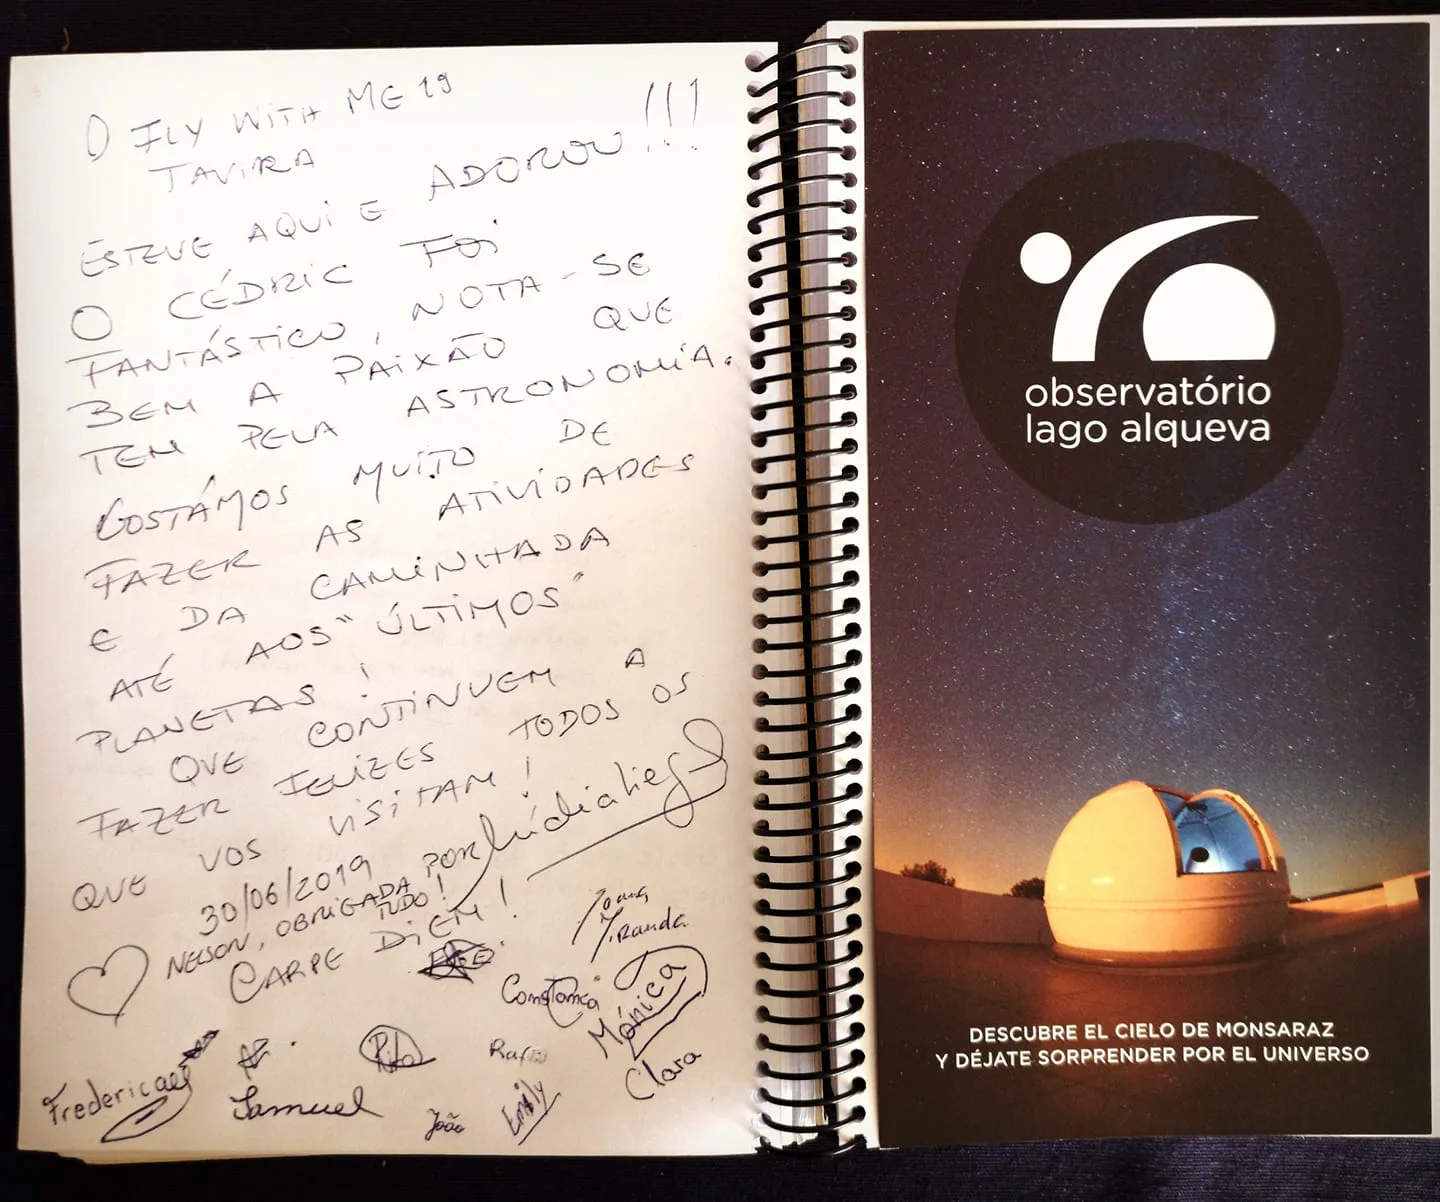 O FLY WITH ME 19
TAVIRA
ESTEVE AQUI E ADOROU!!!
O CÉDRIC FOI
FANTÁSTICO, NOTA-SE
BEM A PAIXÃO QUE
TEM PELA ASTRONOMIA.
GOSTÁMOS MUITO DE
FAZER AS ATIVIDADES
E DA CAMINHADA
ATÉ AOS "ÚLTIMOS"
PLANETAS!
QUE CONTINUEM A
FAZER FELIZES TODOS OS
QUE VOS VISITAM!
30/06/2019
NELSON, OBRIGADA POR TUDO!
CARPE DIEM!
Joana
Miranda
Constança
Mónica
Clara
Frederica
Samuel
Rita
João
Emily
observatório
lago alqueva
DESCUBRE EL CIELO DE MONSARAZ
Y DÉJATE SORPRENDER POR EL UNIVERSO